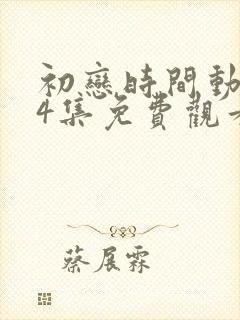 初戀時間動
4集免費觀
蔡展霖